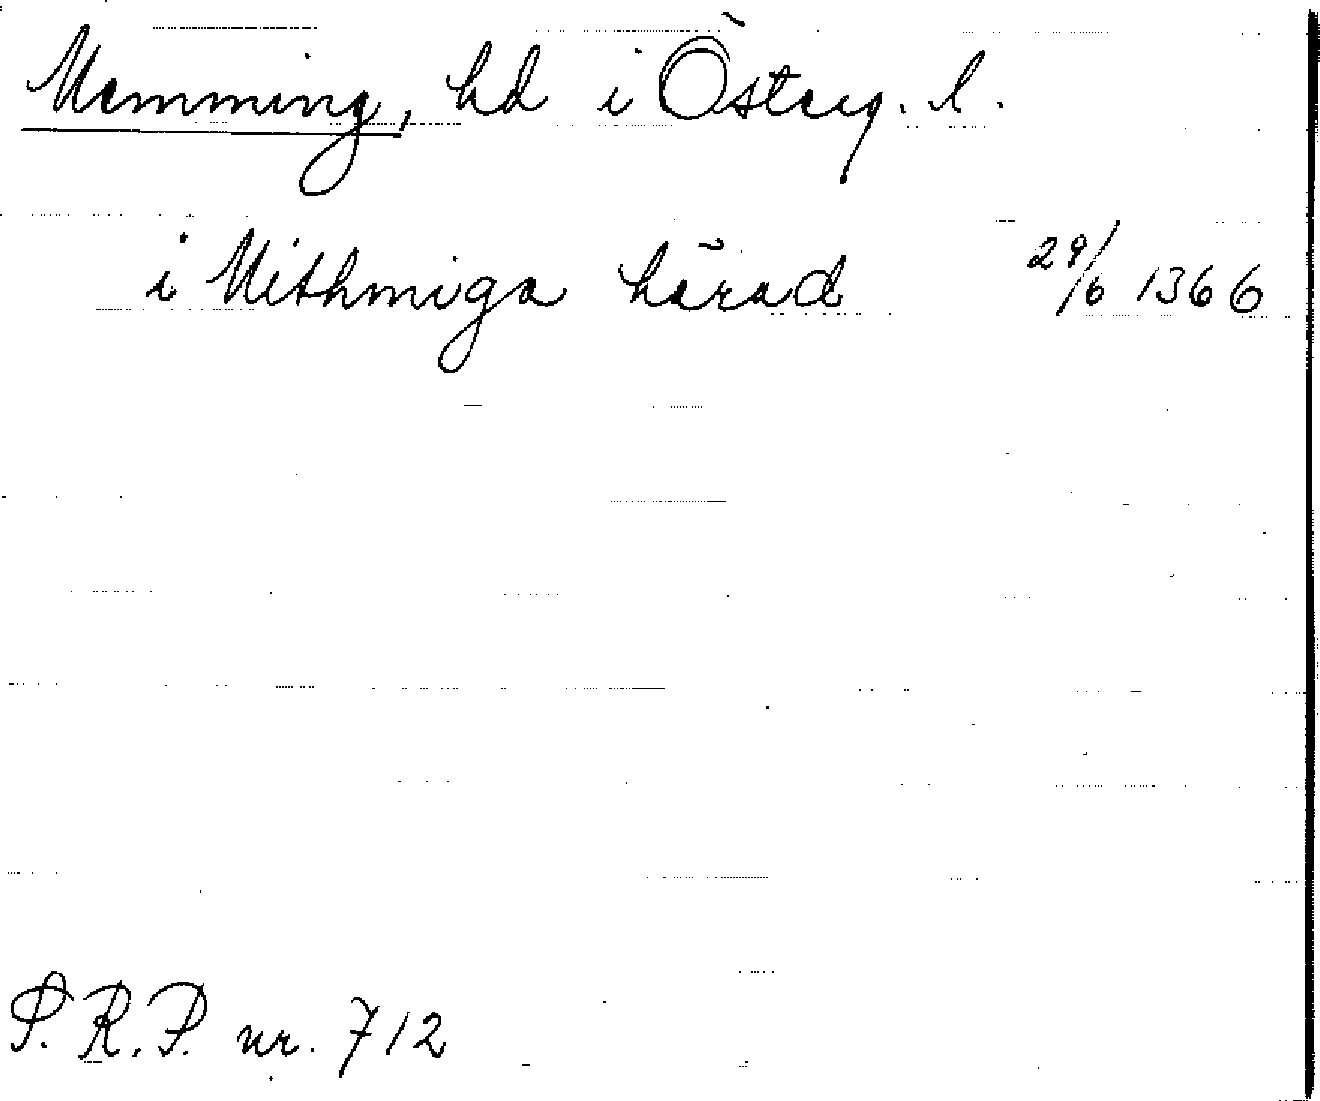 Memming, hd i Österg. l.
i Mithmiga härad 29/6 1366
S. R. P. nr. 712